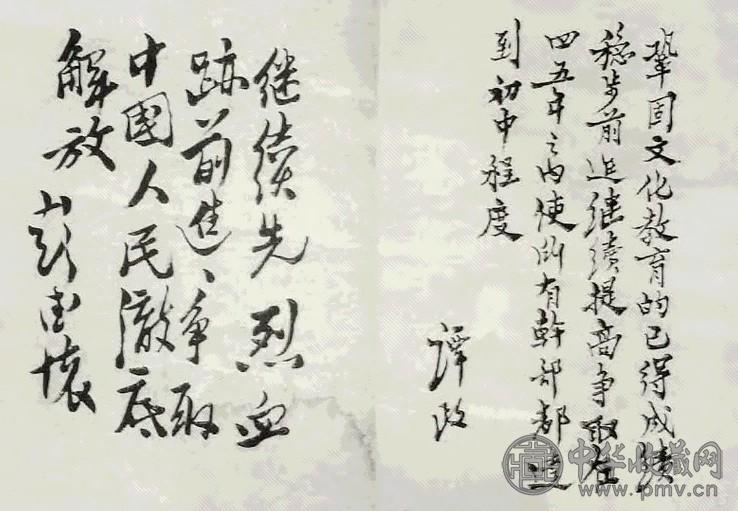 巩固文化教育的已得成绩
稳步前进继续提高争取在
四五年之内使所有幹部都达
到初中程度
譚政
继续先烈血
跡前進、争取
中國人民澈底
解放 彭德懷
中华收藏网
www.pmv.cn